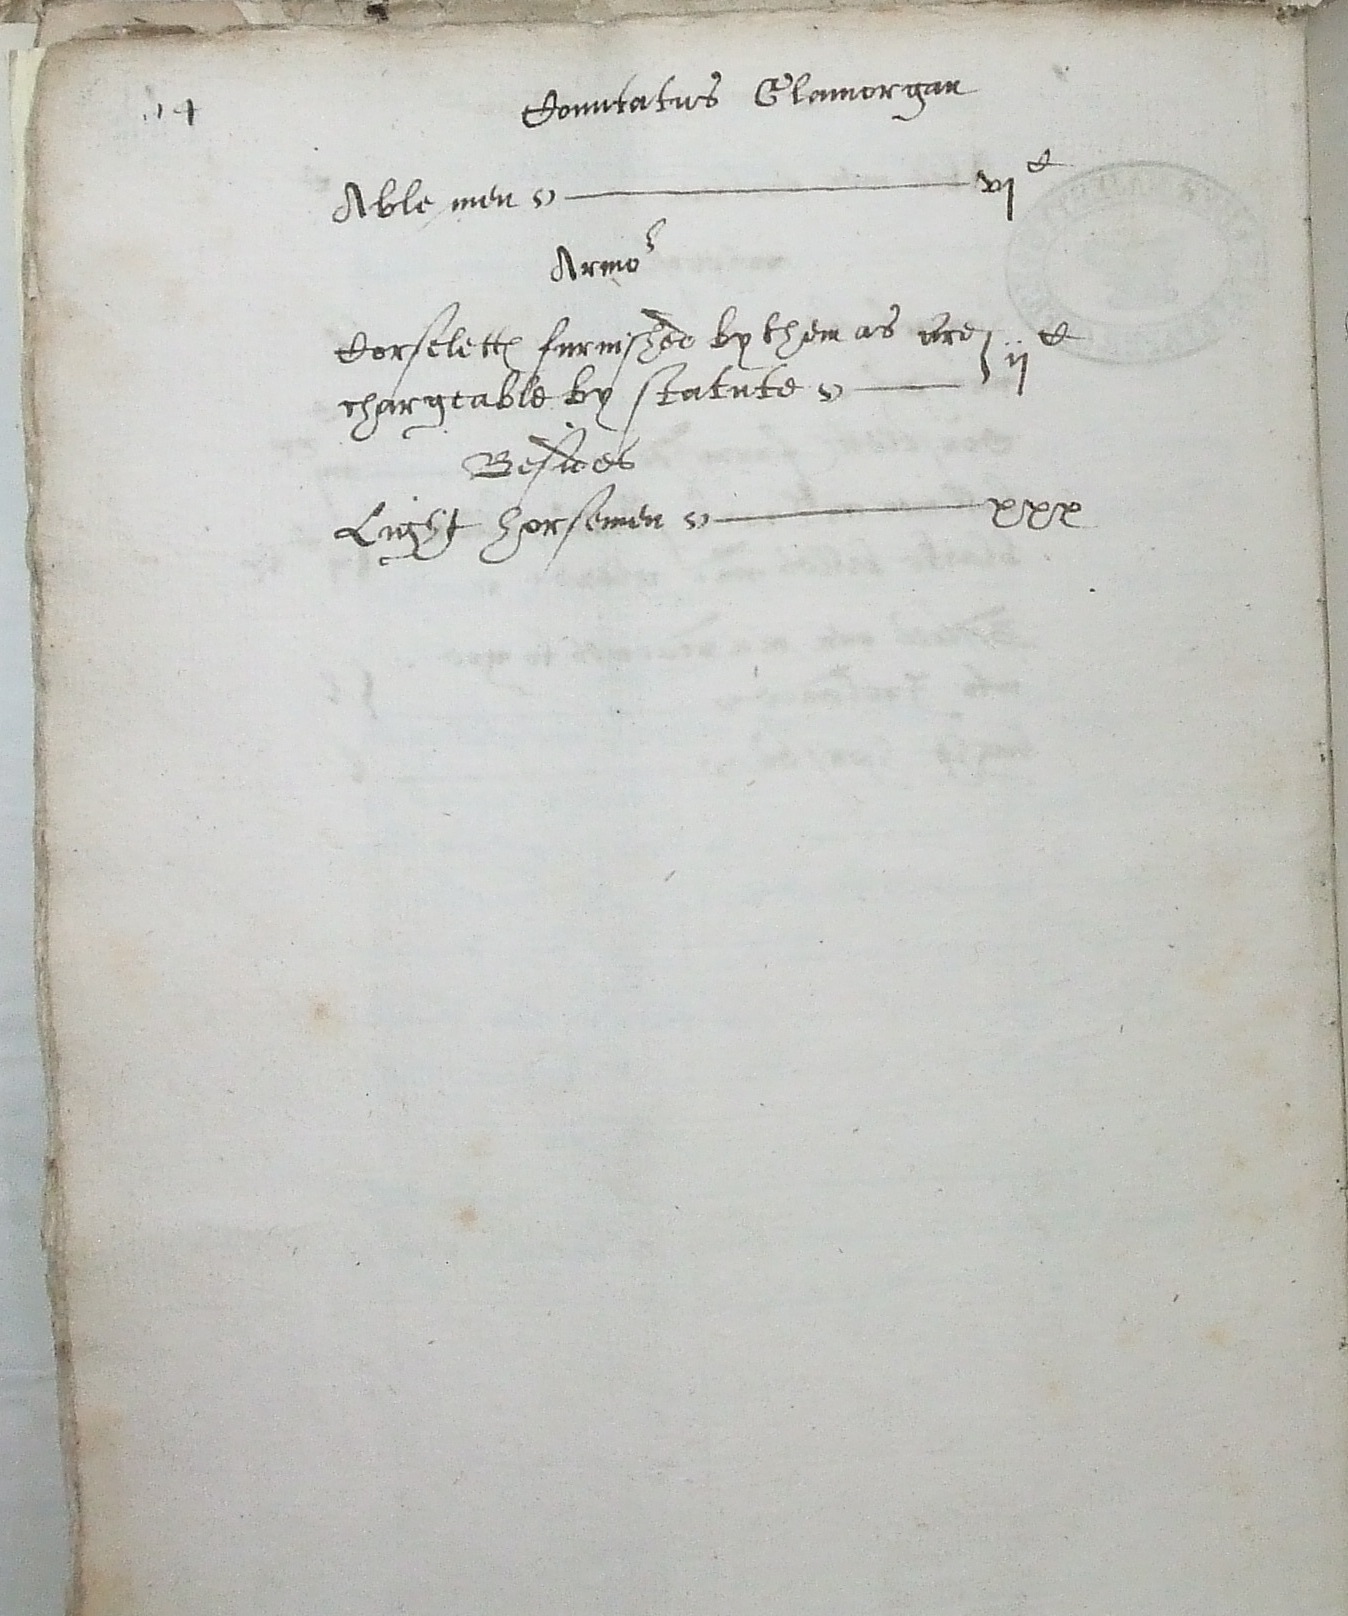 14
Comitatus Glamorgan
Able men vjᶜ
Armoʳ
Corselettes furnished by them as are
chargeable by statute ijᶜ
Besides
Light horsemen xxx